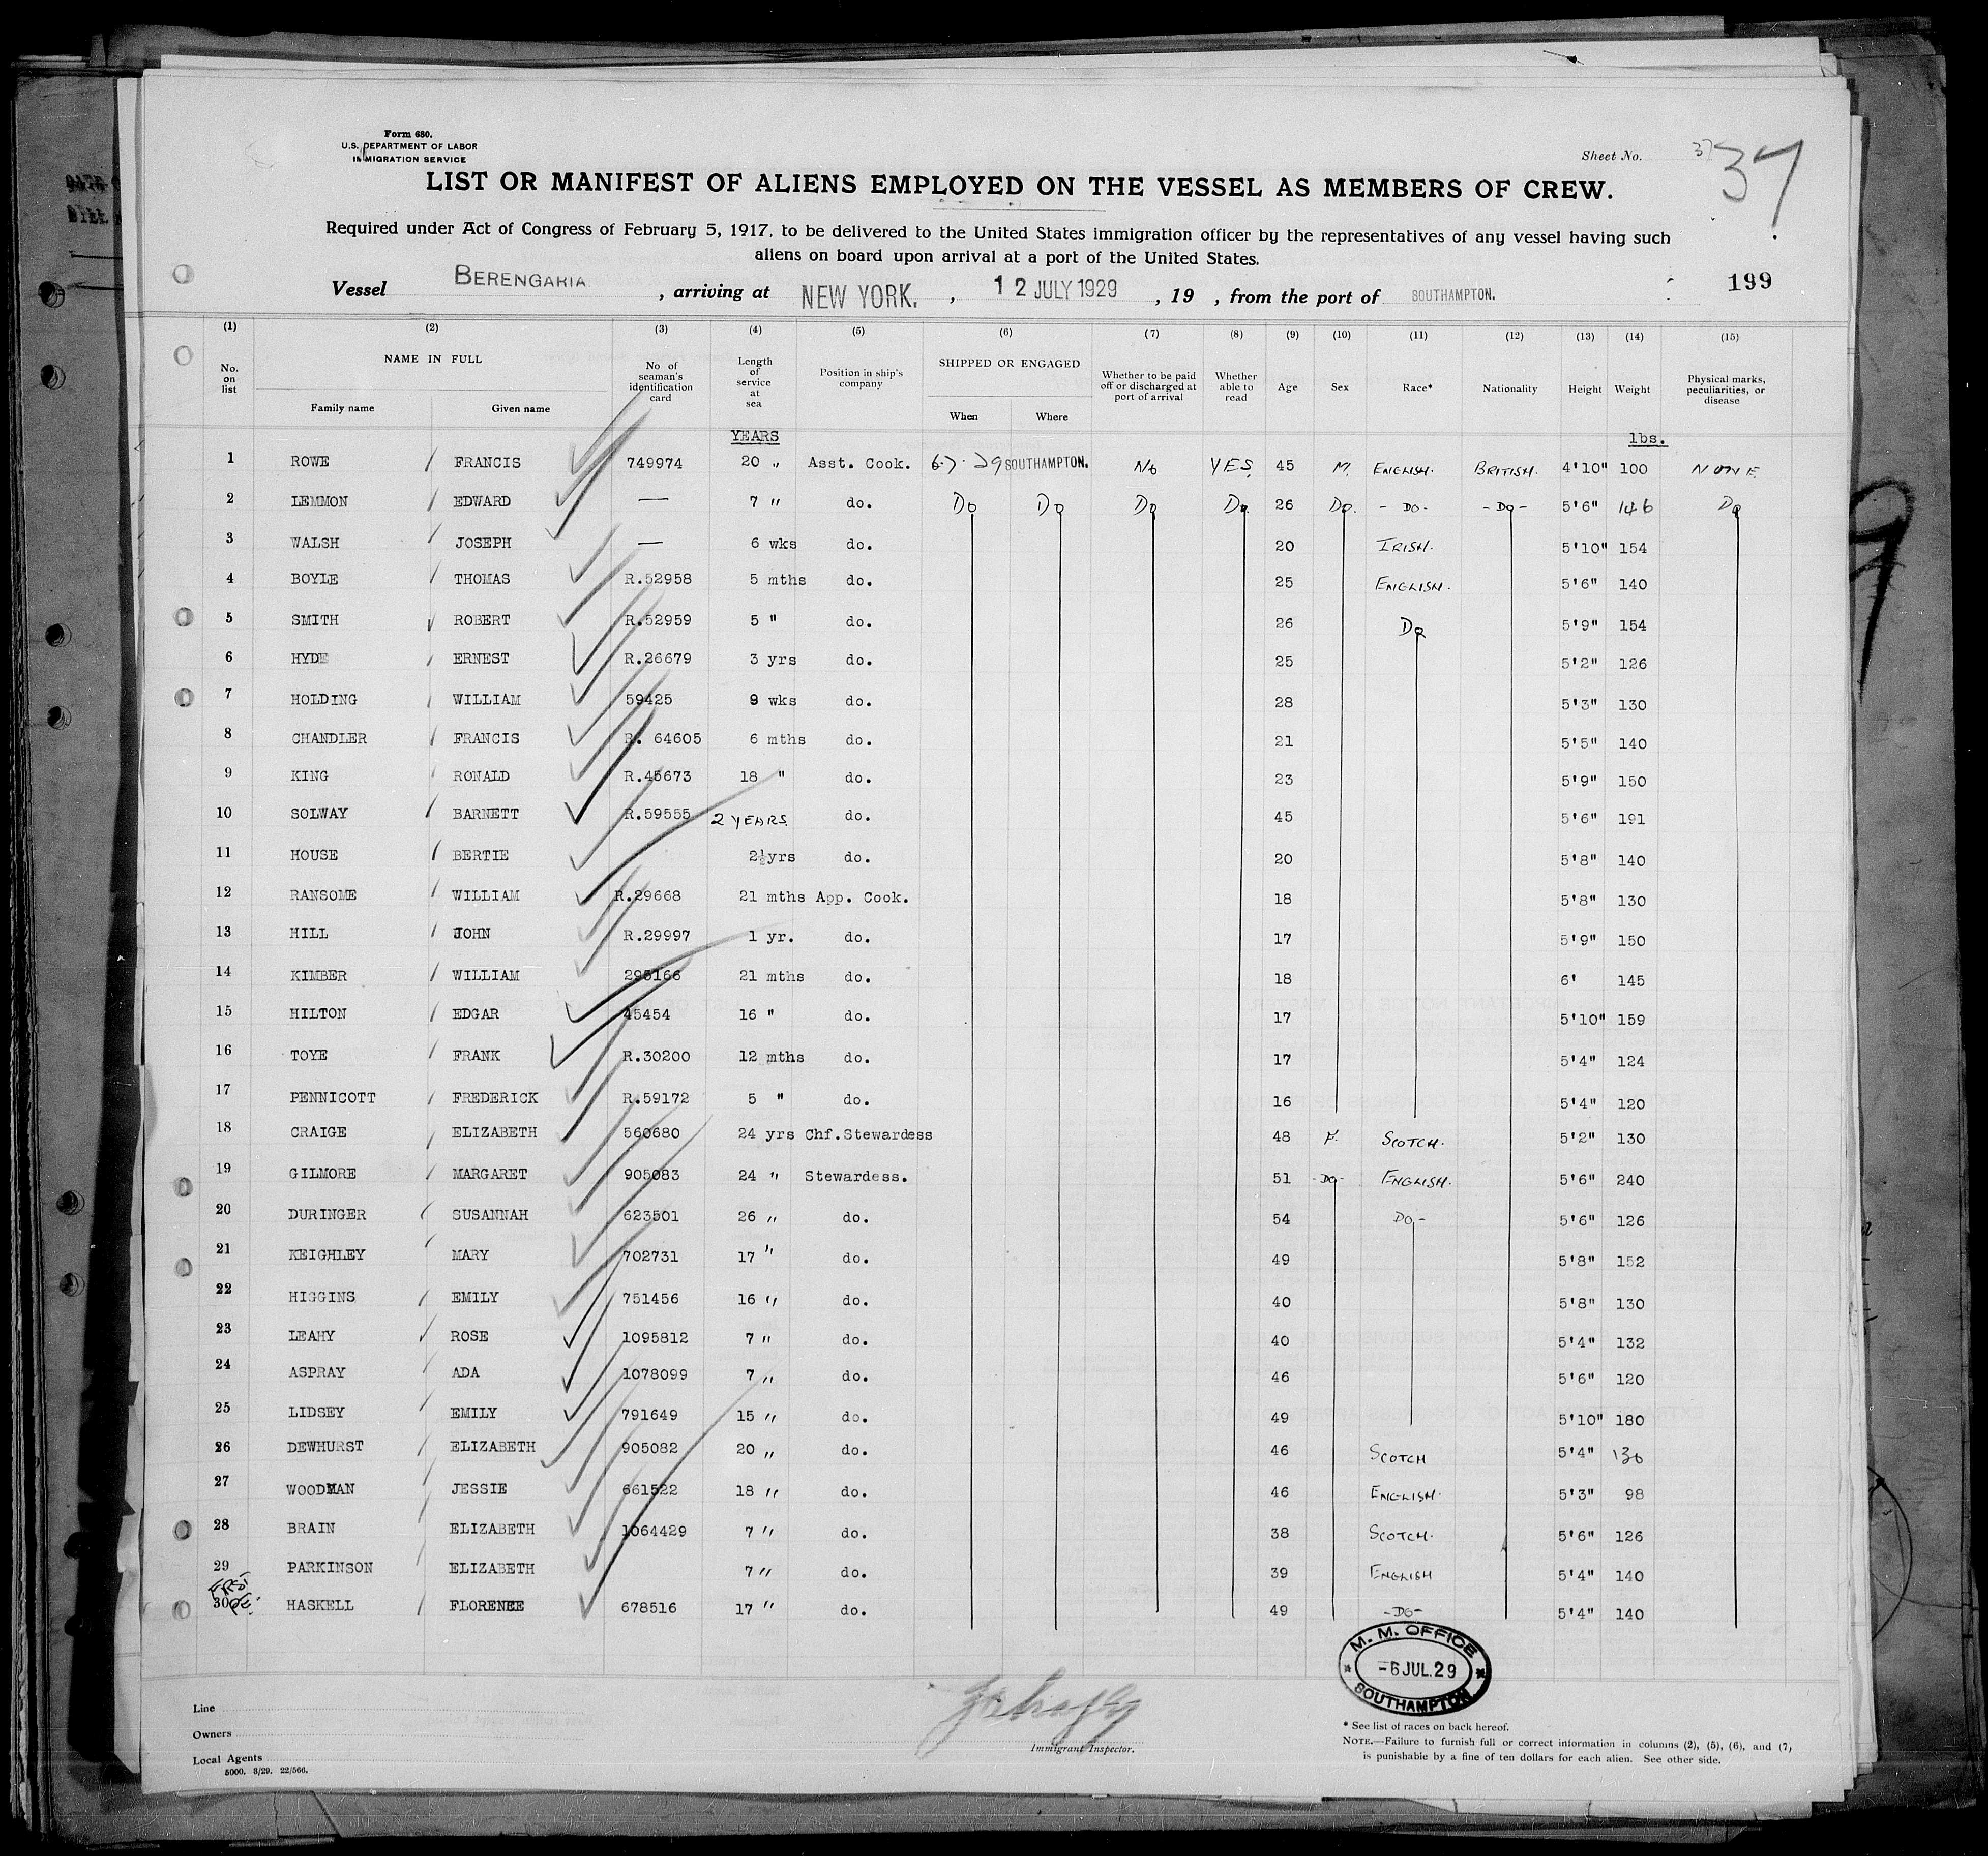 Form 680.
U.S. DEPARTMENT OF LABOR
IMMIGRATION SERVICE
Sheet No. 37 37
LIST OR MANIFEST OF ALIENS EMPLOYED ON THE VESSEL AS MEMBERS OF CREW.
Required under Act of Congress of February 5, 1917, to be delivered to the United States immigration officer by the representatives of any vessel having such
aliens on board upon arrival at a port of the United States.
199
Vessel BERENGARIA, arriving at NEW YORK. , 12 JULY 1929 , 19 , from the port of SOUTHAMPTON.
(1) (2) (3) (4) (5) (6) (7) (8) (9) (10) (11) (12) (13) (14) (15)
No. on list NAME IN FULL Family name Given name No of seaman's identification card Length of service at sea Position in ship's company SHIPPED OR ENGAGED When Where Whether to be paid off or discharged at port of arrival Whether able to read Age Sex Race* Nationality Height Weight Physical marks, peculiarities, or disease
YEARS lbs.
1 ROWE FRANCIS 749974 20 " Asst. Cook. 6.7.29 SOUTHAMPTON. No YES 45 M. ENGLISH. BRITISH. 4'10" 100 NONE
2 LEMMON EDWARD — 7 " do. Do Do Do Do 26 Do. - Do - - Do - 5'6" 146 Do
3 WALSH JOSEPH — 6 wks do. 20 IRISH. 5'10" 154
4 BOYLE THOMAS R.52958 5 mths do. 25 ENGLISH. 5'6" 140
5 SMITH ROBERT R.52959 5 " do. 26 Do 5'9" 154
6 HYDE ERNEST R.26679 3 yrs do. 25 5'2" 126
7 HOLDING WILLIAM 59425 9 wks do. 28 5'3" 130
8 CHANDLER FRANCIS R. 64605 6 mths do. 21 5'5" 140
9 KING RONALD R.45673 18 " do. 23 5'9" 150
10 SOLWAY BARNETT R.59555 2 YEARS. do. 45 5'6" 191
11 HOUSE BERTIE 2½yrs do. 20 5'8" 140
12 RANSOME WILLIAM R.29668 21 mths App. Cook. 18 5'8" 130
13 HILL JOHN R.29997 1 yr. do. 17 5'9" 150
14 KIMBER WILLIAM 295166 21 mths do. 18 6' 145
15 HILTON EDGAR 45454 16 " do. 17 5'10" 159
16 TOYE FRANK R.30200 12 mths do. 17 5'4" 124
17 PENNICOTT FREDERICK R.59172 5 " do. 16 5'4" 120
18 CRAIGE ELIZABETH 560680 24 yrs Chf.Stewardess 48 F. SCOTCH. 5'2" 130
19 GILMORE MARGARET 905083 24 " Stewardess. 51 - Do - ENGLISH. 5'6" 240
20 DURINGER SUSANNAH 623501 26 " do. 54 Do - 5'6" 126
21 KEIGHLEY MARY 702731 17 " do. 49 5'8" 152
22 HIGGINS EMILY 751456 16 " do. 40 5'8" 130
23 LEAHY ROSE 1095812 7 " do. 40 5'4" 132
24 ASPRAY ADA 1078099 7 " do. 46 5'6" 120
25 LIDSEY EMILY 791649 15 " do. 49 5'10" 180
26 DEWHURST ELIZABETH 905082 20 " do. 46 SCOTCH 5'4" 136
27 WOODMAN JESSIE 661522 18 " do. 46 ENGLISH. 5'3" 98
28 BRAIN ELIZABETH 1064429 7 " do. 38 SCOTCH. 5'6" 126
29 PARKINSON ELIZABETH 7 " do. 39 ENGLISH 5'4" 140
30 HASKELL FLORENCE 678516 17 " do. 49 - Do - 5'4" 140
M. M. OFFICE
-6 JUL.29
SOUTHAMPTON
Line
Owners
Local Agents
5000. 3/29. 22/566.
Immigrant Inspector.
* See list of races on back hereof.
NOTE.—Failure to furnish full or correct information in columns (2), (5), (6), and (7)
is punishable by a fine of ten dollars for each alien. See other side.